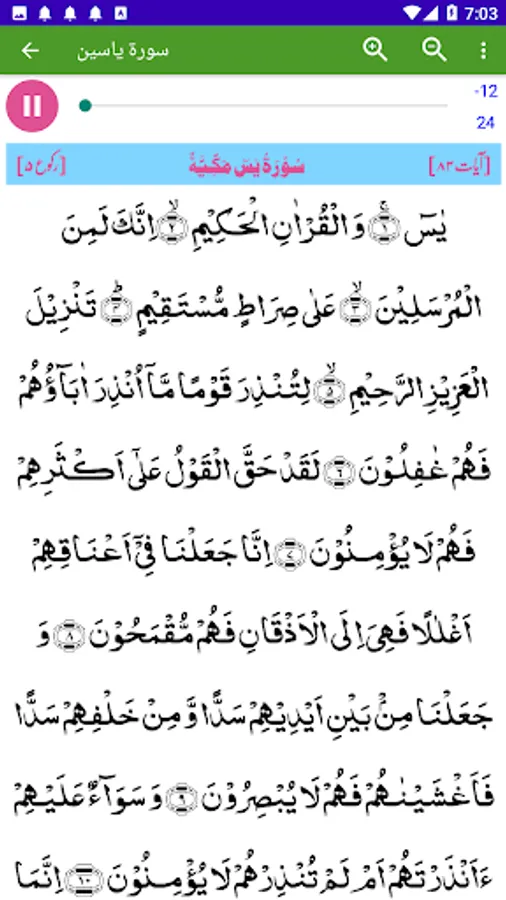 7:03
سورة ياسين
-12
24
[آیات ۸۳] سُوْرَةُ يٰسٓ مَكِّيَّةٌ [رکوع ۵]
يٰسٓ ۚ﴿۱﴾ وَالْقُرْاٰنِ الْحَكِيْمِ ۙ﴿۲﴾ اِنَّكَ لَمِنَ
الْمُرْسَلِيْنَ ۙ﴿۳﴾ عَلٰى صِرَاطٍ مُّسْتَقِيْمٍ ؕ﴿۴﴾ تَنْزِيْلَ
الْعَزِيْزِ الرَّحِيْمِ ۙ﴿۵﴾ لِتُنْذِرَ قَوْمًا مَّاۤ اُنْذِرَ اٰبَآؤُهُمْ
فَهُمْ غٰفِلُوْنَ ﴿۶﴾ لَقَدْ حَقَّ الْقَوْلُ عَلٰۤى اَكْثَرِهِمْ
فَهُمْ لَا يُؤْمِنُوْنَ ﴿۷﴾ اِنَّا جَعَلْنَا فِيْۤ اَعْنَاقِهِمْ
اَغْلٰلًا فَهِيَ اِلَى الْاَذْقَانِ فَهُمْ مُّقْمَحُوْنَ ﴿۸﴾ وَ
جَعَلْنَا مِنْۢ بَيْنِ اَيْدِيْهِمْ سَدًّا وَّمِنْ خَلْفِهِمْ سَدًّا
فَاَغْشَيْنٰهُمْ فَهُمْ لَا يُبْصِرُوْنَ ﴿۹﴾ وَسَوَآءٌ عَلَيْهِمْ
ءَاَنْذَرْتَهُمْ اَمْ لَمْ تُنْذِرْهُمْ لَا يُؤْمِنُوْنَ ﴿۱۰﴾ اِنَّمَا